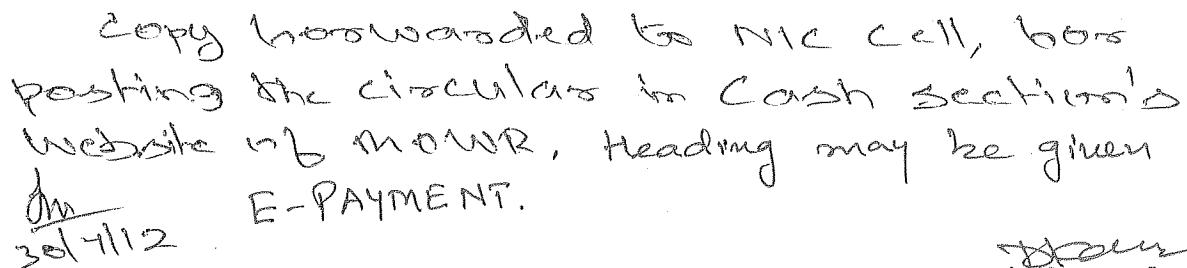 Copy forwarded to NIC Cell, for
posting the circular in Cash section's
website of MOWR, Heading may be given
E-PAYMENT.
30/7/12